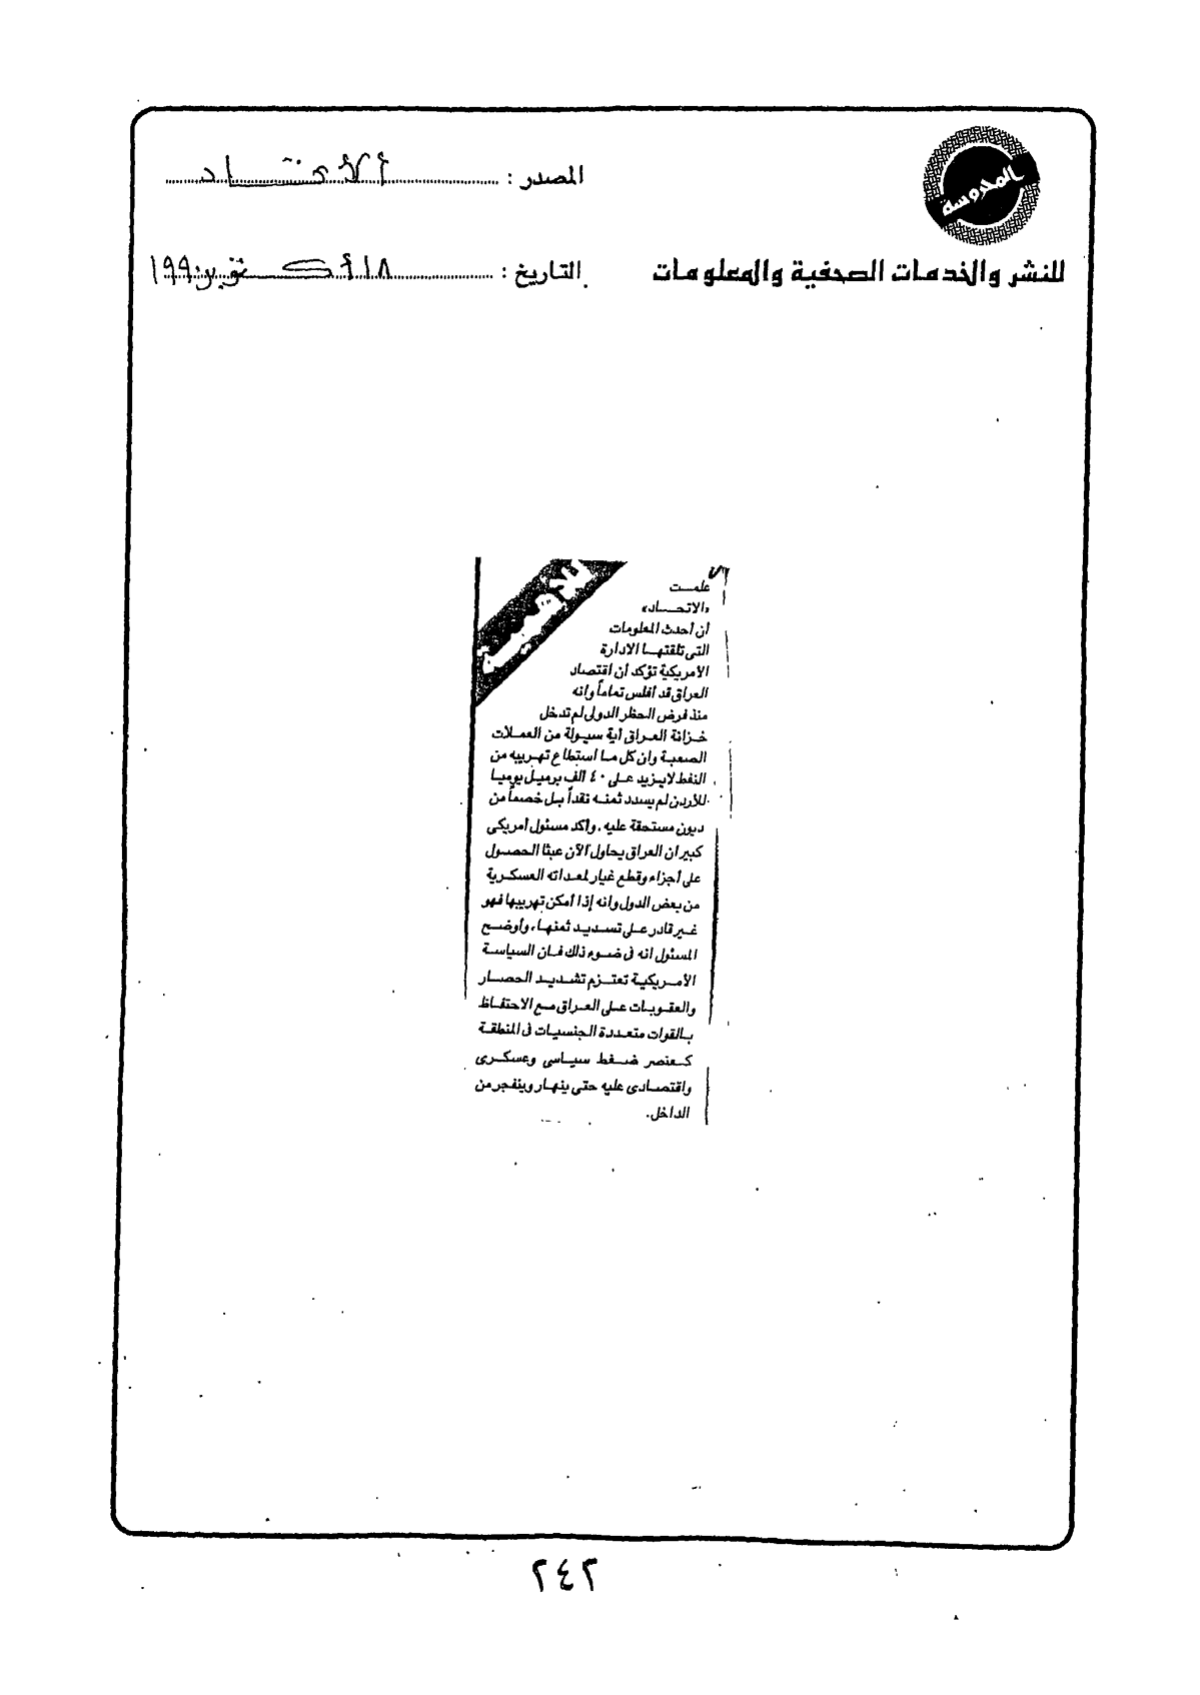 المحروسة
المصدر :
للنشر والخدمات الصحفية والمعلومات
التاريخ : ١٨ أكتوبر ١٩٩٠
علمت
«الاتحاد»
أن أحدث المعلومات
التى تلقتها الادارة
الأمريكية تؤكد أن اقتصاد
العراق قد أفلس تماماً وانه
منذ فرض الحظر الدولى لم تدخل
خزانة العراق أية سيولة من العملات
الصعبة وان كل ما استطاع تهريبه من
النفط لايزيد على ٤٠ الف برميل يوميا
للأردن لم يسدد ثمنه نقداً بل خصماً من
ديون مستحقة عليه، وأكد مسئول أمريكى
كبير ان العراق يحاول الآن عبثا الحصول
على أجزاء وقطع غيار لمعداته العسكرية
من بعض الدول وانه إذا أمكن تهريبها فهو
غير قادر على تسديد ثمنها، وأوضح
المسئول انه فى ضوء ذلك فان السياسة
الأمريكية تعتزم تشديد الحصار
والعقوبات على العراق مع الاحتفاظ
بالقوات متعددة الجنسيات فى المنطقة
كعنصر ضغط سياسى وعسكرى
واقتصادى عليه حتى ينهار وينفجر من
الداخل.
٢٤٢